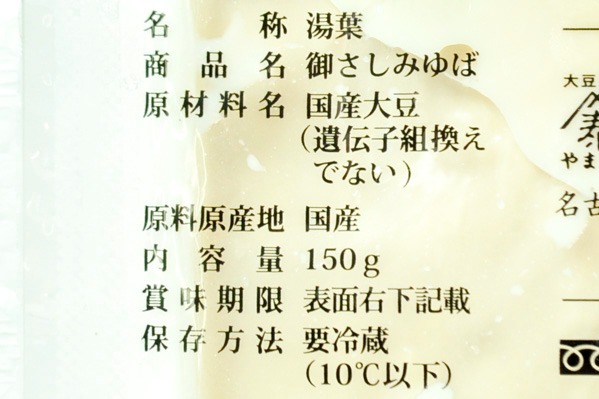 名称 湯葉
商品名 御さしみゆば
原材料名 国産大豆
(遺伝子組換え
でない)
原料原産地 国産
内容量 150g
賞味期限 表面右下記載
保存方法 要冷蔵
(10℃以下)
大豆
やま
名古